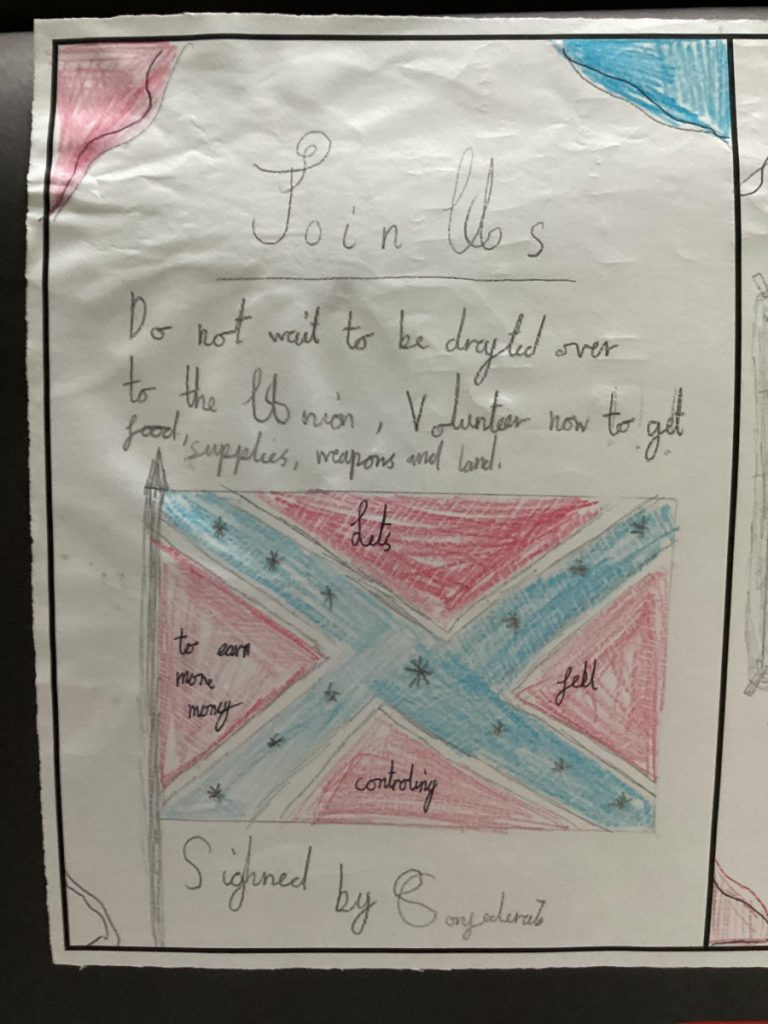 Join Us
Do not wait to be drafted over
to the Union, Volunteer now to get
food, supplies, weapons and land.
Lets
to earn
more
money
fell
controling
Sighned by Confederate